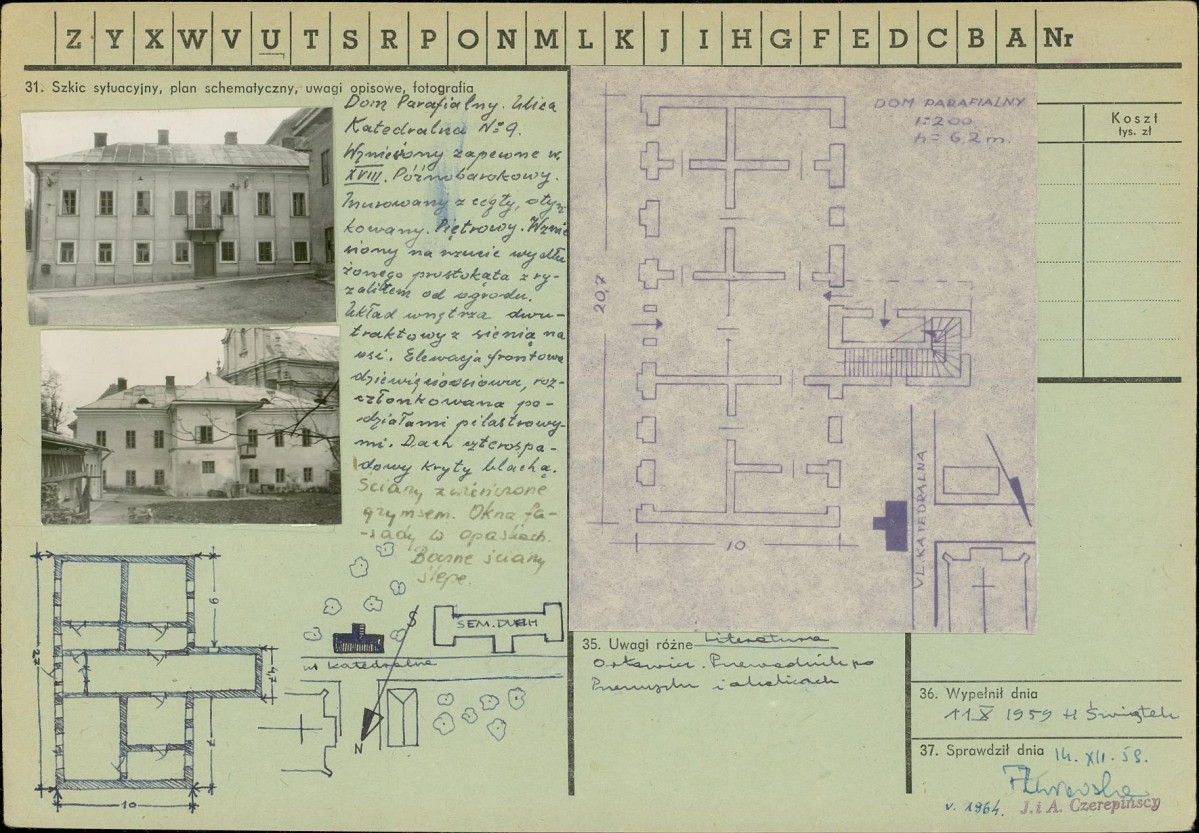 Z Y X W V U T S R P O N M L K J I H G F E D C B A Nr
31. Szkic sytuacyjny, plan schematyczny, uwagi opisowe, fotografia
Dom Parafialny. Ulica
Katedralna No 9.
Wzniesiony zapewne w.
XVIII. Późnobarokowy.
Murowany z cegły, otyn
kowany. Piętrowy. Wznie
siony na rzucie wydłu
żonego prostokąta z ry-
zalitem od ogrodu.
Układ wnętrza dwu-
traktowy z sienią na
osi. Elewacja frontowa
dziewięcioosiowa, roz-
członkowana po-
działami pilastrowy-
mi. Dach czterospa-
dowy kryty blachą.
Ściany zwieńczone
gzymsem. Okna fa-
-sady w opaskach.
Boczne ściany
ślepe.
22
9
4,5
7
10
SEM. DUCH
ul Katedralna
S
N
DOM PARAFIALNY
1:200
h = 6,2 m.
20,7
10
UL. KATEDRALNA
Koszt
tys. zł
35. Uwagi różne Literatura
Orłowicz. Przewodnik po
Przemyślu i okolicach
36. Wypełnił dnia
11 X 1959 H Świątek
37. Sprawdził dnia 14. XII. 59.
v. 1964. J. i A. Czerepińscy